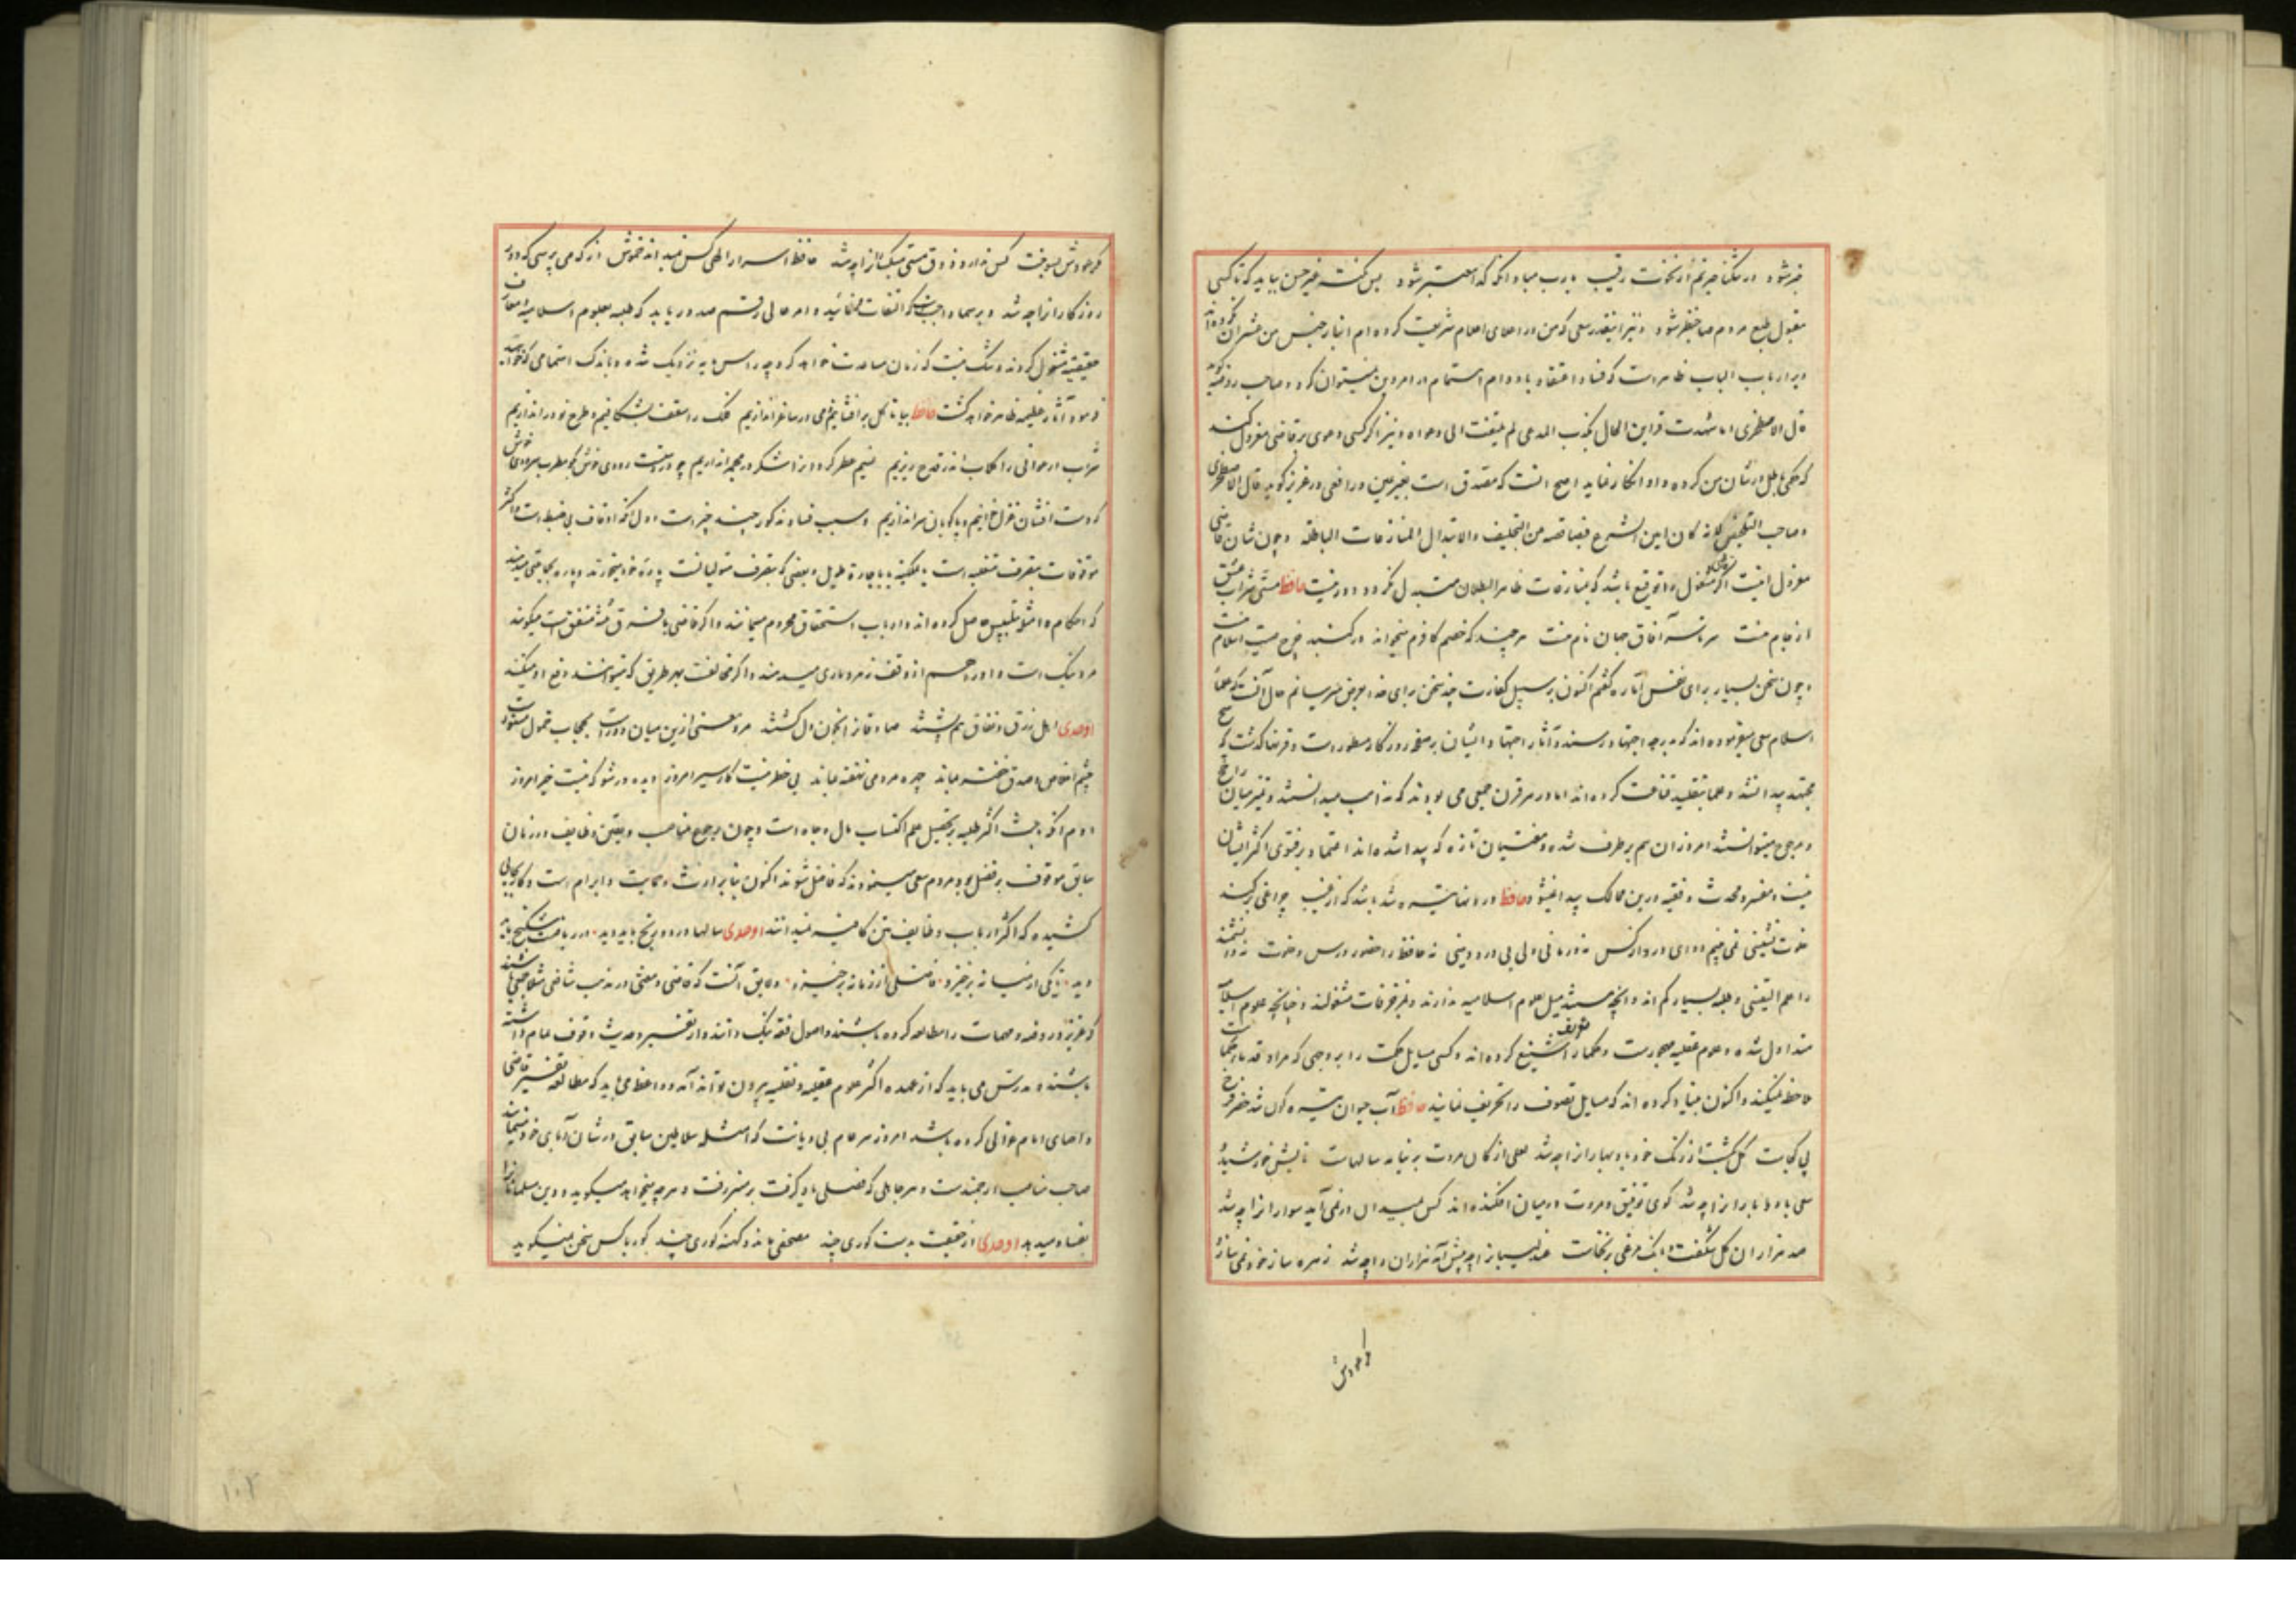 خبر شود در تنگنای حیرتم از نخوت رقیب یا رب مباد آنکه گدا معتبر شود بس نکته غیر حسن بباید که تا کسی
مقبول طبع مردم صاحب نظر شود و نیز اینقدر سعی که من در اعلای اعلام شریعت کرده‌ام
و بر ارباب الباب ظاهر است که فساد اعتقاد با دوام اهتمام در امر دین نمیتوان کرد و صاحب روضه گوید
قال الاصطخری اذا شهدت قراین الحال بکذب المدعی لم یلتفت الی دعواه و نیز اگر کسی دعوی بر قاضی معزول کند
که حکم باطل در شان من کرده و او انکار نماید اصح آنست که مصدق است بغیر یمین و رافعی در عزیز گوید قال الاصطخری
و صاحب التلخیص لانه کان امین الشرع فیصان منصبه من التحلیف والابتذال بالمنازعات الباطلة و چون شان قاضی
معزول اینست اگر مشغول را توقع باشد که بمنازعات ظاهر البطلان مبتذل نگردد دور نیست حافظ مستی شراب عشق
از جام منست سر تا سر آفاق جهان نام منست هر چند که خصم کافرم میخواند در گنبد چرخ صیت اسلام منست
و چون سخن بسیار برای نفس اماره گفتم اکنون بر سبیل کفارت چند سخن برای خدا بعرض میرسانم حال آنست که علماء
اسلام سعی میفرموده‌اند که بدرجه اجتهاد رسند و آثار اجتهاد ایشان بر صفحه روزگار مسطور است و قرنها گذشت که هیچ
مجتهد پیدا نشد و علما بتقلید قناعت کرده‌اند اما در هر قرن جمعی می بودند که مذاهب میدانستند و تمییز میان راجح
و مرجوح میتوانستند امروز آن هم بر طرف شده و مفتیان تازه که پیدا شده‌اند اعتماد بر فتوی اکثر ایشان
نیست و مفسر و محدث و فقیه درین ممالک پیدا نمیشود حافظ در راه ما تیره شد باشد که از غیب چراغی بر کند
خلوت نشینی نمی بینم دوای درد در کس نه درمانی دلی بی درد دینی نه حافظ را حضور درس و خلوت نه دانشمند
را علم الیقینی و طلبه بسیار کم‌اند و آنچه هستند میل بعلوم اسلامیه ندارند و بمزخرفات مشغولند و چنانچه علوم اسلامیه
متداول شده و علوم عقلیه مهجور است و حکما را تشنیع کرده‌اند و کسی مسایل حکمت را بر وجهی که مراد قدماء حکماست
ملاحظه نمیکند و اکنون بنیاد کرده‌اند که مسایل تصوف را تحریف نمایند حافظ آب حیوان تیره گون شد خضر فرخ
پی کجاست گل بگشت از رنگ خود باد بهاران را چه شد لعلی از کان مروت بر نیامد سالهاست تابش خورشید و
سعی باد و باران را چه شد گوی توفیق و مروت در میان افکنده‌اند کس بمیدان در نمی آید سواران را چه شد
صد هزاران گل شگفت و بانگ مرغی بر نخاست عندلیبان را چه پیش آمد هزاران را چه شد زهره سازی خوش نمی سازد
مگر عودش
مگر عودش بسوخت کس ندارد ذوق مستی میگساران را چه شد حافظ اسرار الهی کس نمیداند خموش از که می پرسی که دور
روزگاران را چه شد و بر سما واجبست که التفات نمایید و امر عالی رقم صدور یابد که طلبه بعلوم اسلامیه و معارف
حقیقیه مشغول گردند و شک نیست که زمان مساعدت خواهد کرد چه راس مایه نزدیک شده و باندک اهتمامی که خواهند
فرمود آثار عظیمه ظاهر خواهد گشت حافظ بیا تا گل بر افشانیم و می در ساغر اندازیم فلک را سقف بشکافیم و طرح نو در اندازیم
شراب ارغوانی را گلاب اندر قدح ریزیم نسیم عطر گردان را شکر در مجمر اندازیم چو در دستست رودی خوش بگو مطرب سرودی خوش
که دست افشان غزل خوانیم و پاکوبان سر اندازیم و سبب فساد مذکور چند چیز است اول آنکه اوقاف بی ضبط است و اکثر
موقوفات بتصرف متغلبه است یا بملکیه یا باجاره طویل و بعضی که بتصرف متولیانست پاره خود میخورند و پاره بجماعتی میدهند
که احکام و امثله بتلبیس حاصل کرده‌اند و ارباب استحقاق محروم میمانند و اگر قاضی با فسق متفق است میگویند
مرد نیک است و او را هم از وقف زهر ماری میدهند و اگر مخالفت بهر طریق که میتوانند دفع او میکنند
اوحدی اهل زرق و نفاق هم پشتند صادقان را بخون دل کشتند مردمعنی ازین میان دورست بحجاب خمول مستورست
چشم اخلاص و صدق خفته بماند چهره مردمی نهفته بماند بی خطر نیست کار سیر امروز دیده ور شو که نیست خیر امروز
دوم آنکه باعث اکثر طلبه بر تحصیل علم اکتساب مال و جاه است و چون رجوع مناصب و تعیین وظایف در زمان
سابق موقوف بر فضل بود مردم سعی مینمودند که فاضل شوند اکنون بنا بر ارث و حمایت و ابرام است و کار بجایی
کشیده که اکثر ارباب وظایف متن کافیه نمیدانند اوحدی سالها درد و رنج باید دید در ریاضت شکنج باید
دید تا یکی از میانه برخیزد فاضلی از زمانه برخیزد و لایق آنست که قاضی و مفتی در مذهب شافعی مثلا جمعی باشند
که عزیز و روضه و مهمات را مطالعه کرده باشند و اصول فقه نیک دانند و از تفسیر و حدیث وقوف تمام داشته
باشند و مدرس می باید که از عهده اکثر علوم عقلیه و نقلیه بیرون تواند آمد و واعظ می باید که مطالعه تفسیر قاضی
و احیای امام غزالی کرده باشد امروز هر عام بی دیانت که امثله سلاطین سابق در شان آبای خود مینماید
صاحب مناصب ارجمندست و هر جاهلی که فصلی یاد گرفت بر منبر رفت و هر چه میخواهد میگوید و دین مسلمانان را
بفساد میدهد اوحدی از حقیقت بدست کوری چند مصحفی ماند و کهنه گوری چند گور با کس سخن نمیگوید